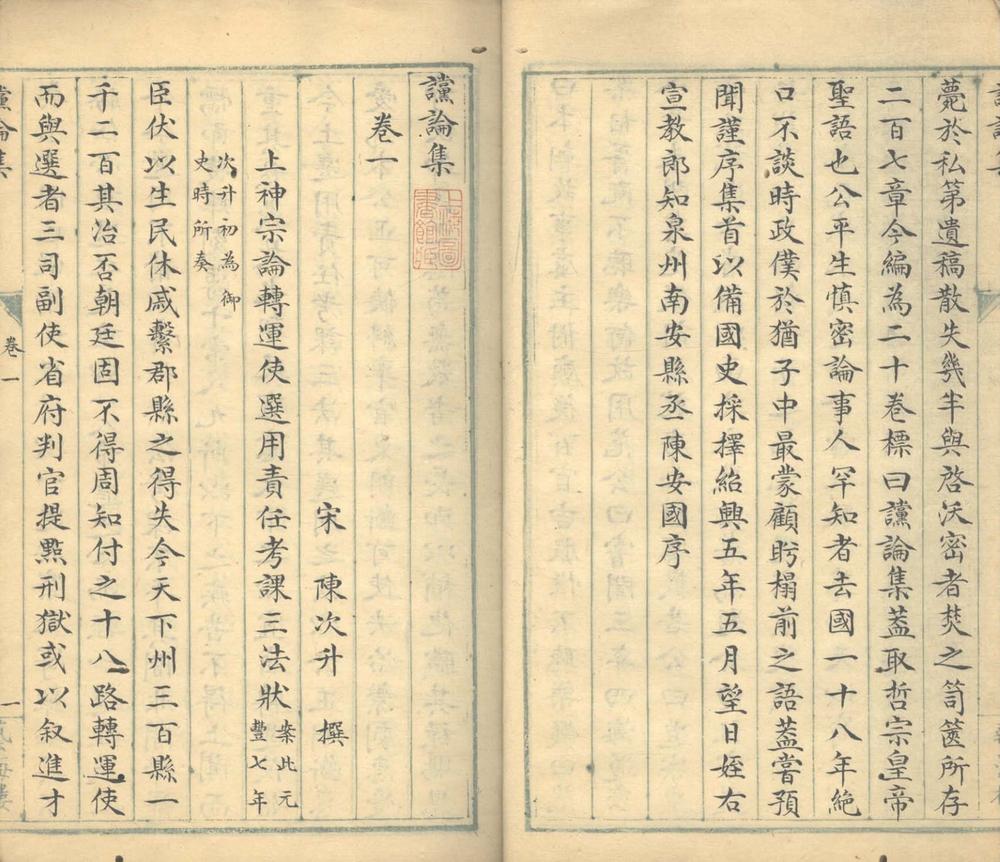 薨於私第遺稿散失幾半與啓沃密者焚之笥篋所存
二百七章今編為二十卷標曰讜論集葢取哲宗皇帝
聖語也公平生慎密論事人罕知者去國一十八年絶
口不談時政僕於猶子中最蒙顧眄榻前之語葢嘗預
聞謹序集首以備國史採擇紹興五年五月望日姪右
宣教郎知泉州南安縣丞陳安國序
讜論集
卷一
宋 陳次升 撰
上神宗論轉運使選用責任考課三法狀案此元豐七年
次升初為御
史時所奏
臣伏以生民休戚繫郡縣之得失今天下州三百縣一
千二百其治否朝廷固不得周知付之十八路轉運使
而與選者三司副使省府判官提點刑獄或以叙進才
讜論集
卷一
一